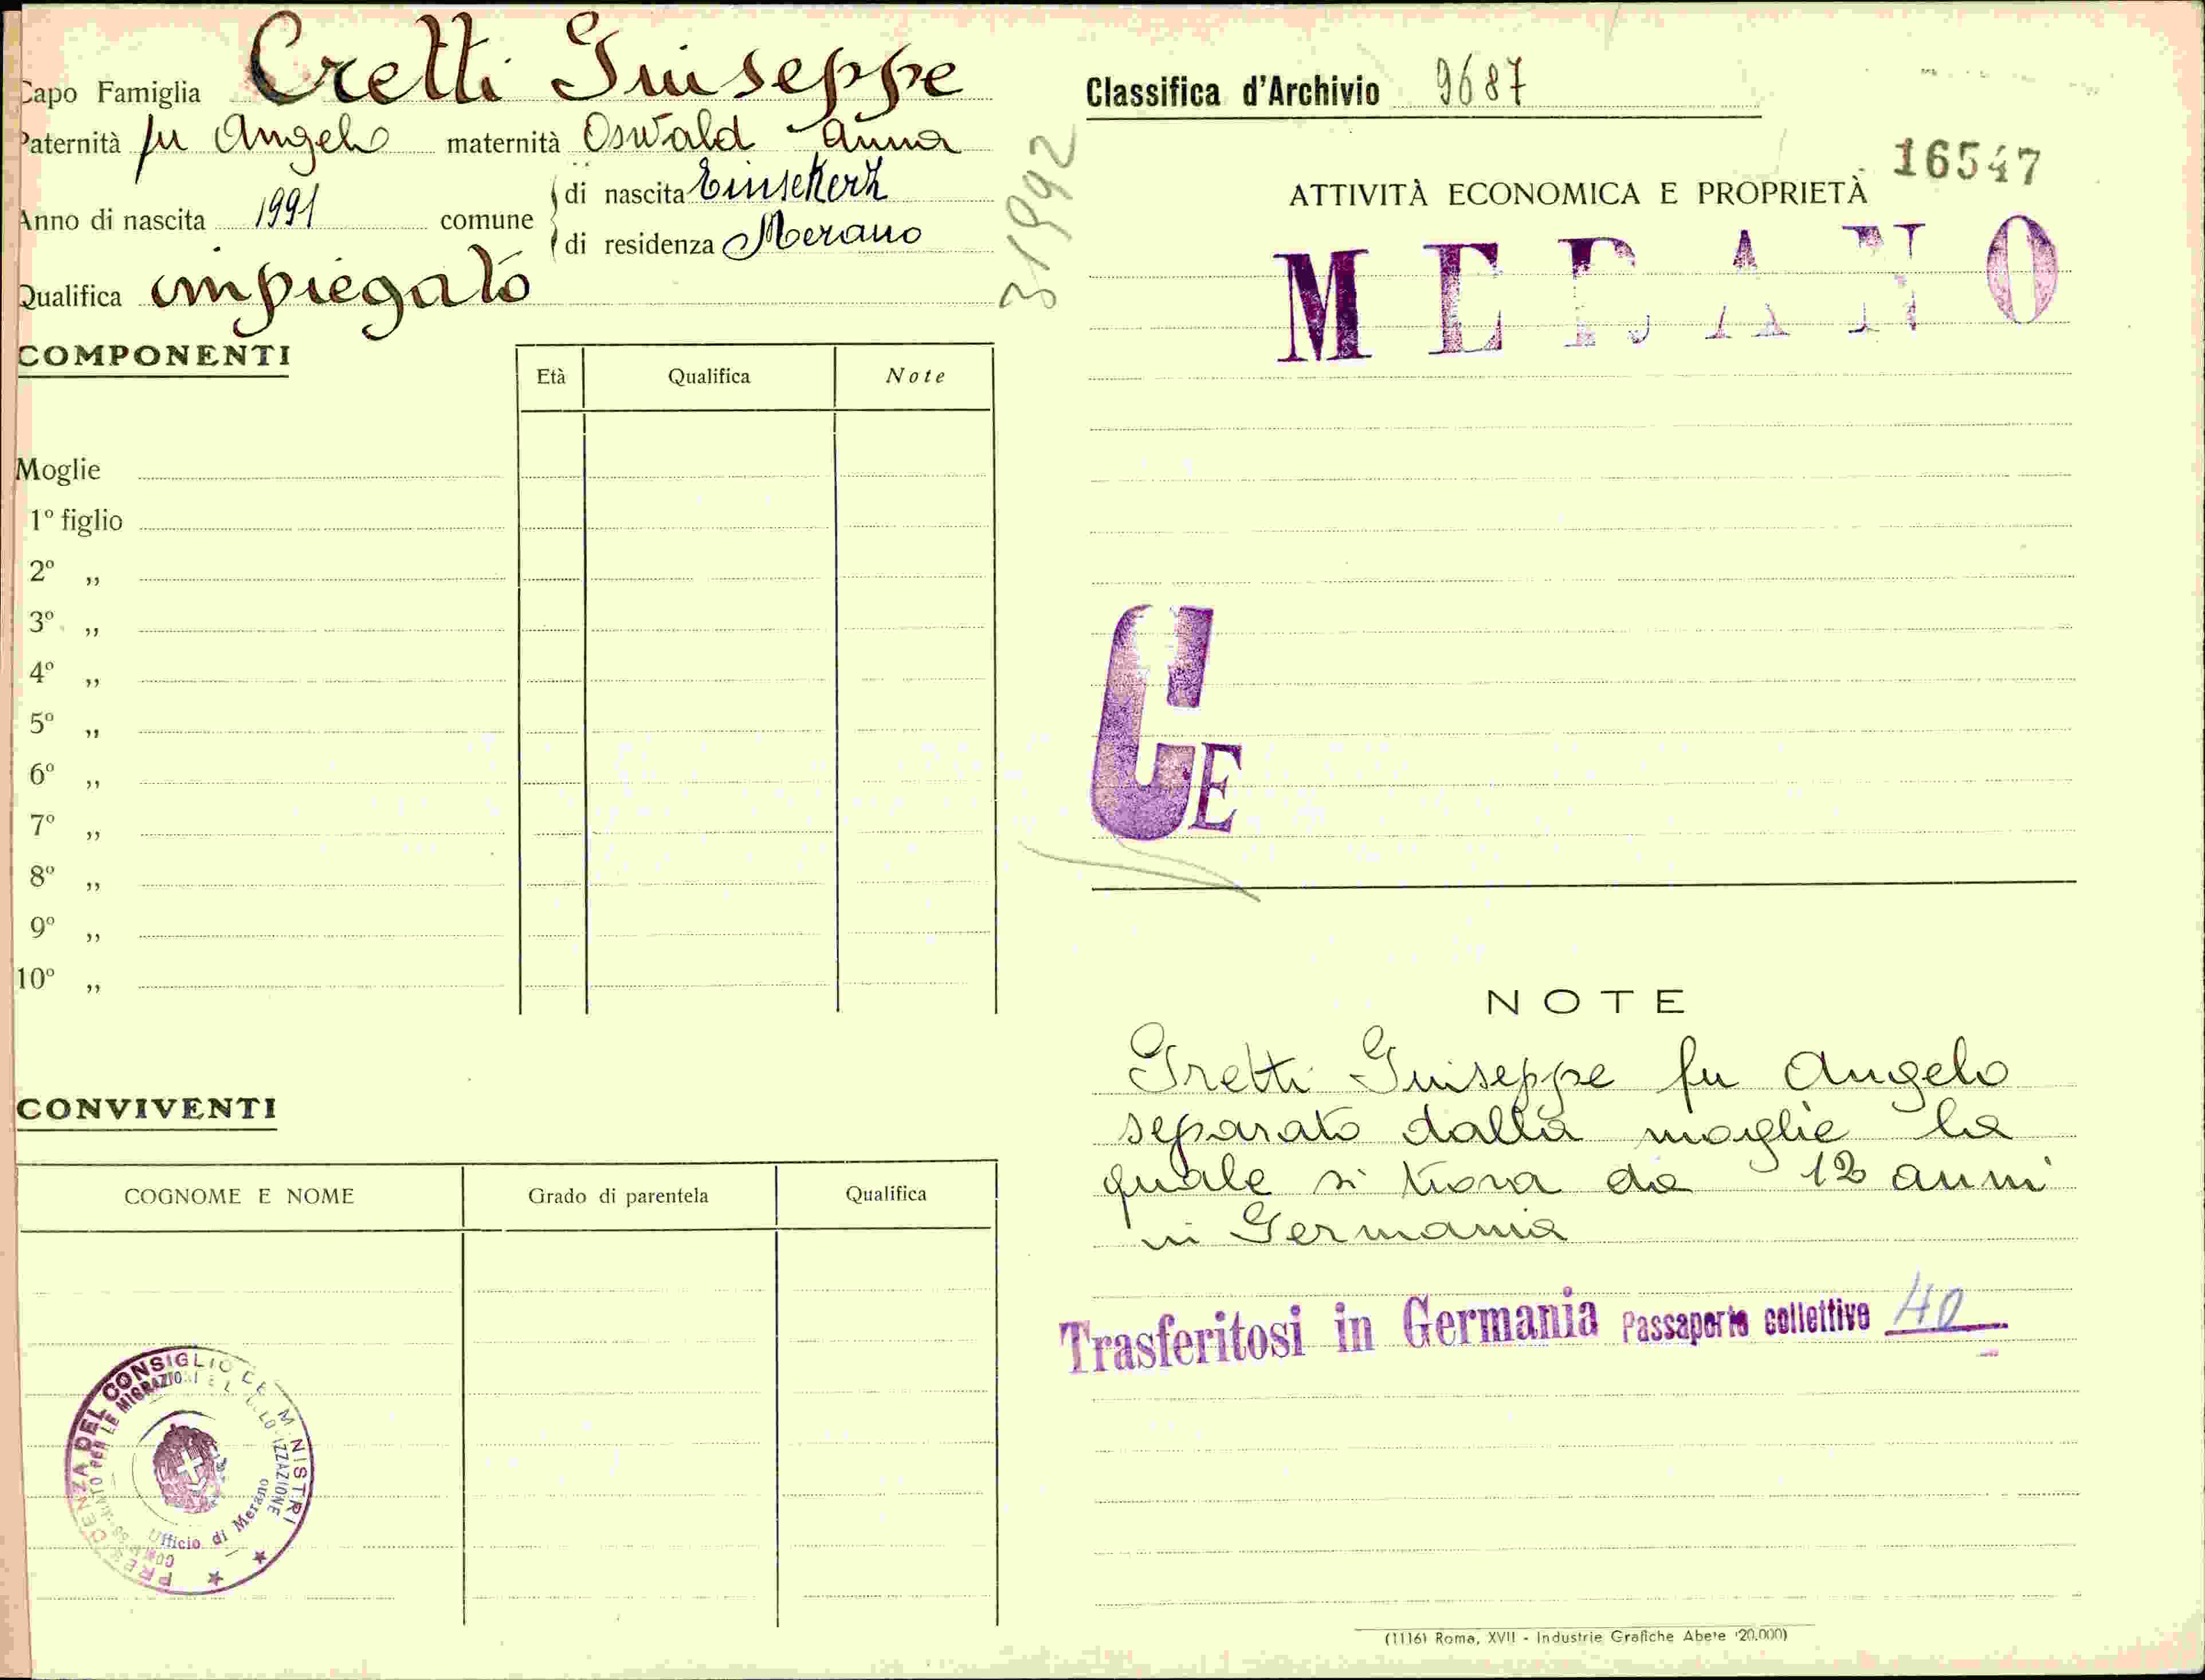 Capo Famiglia Cretti Giuseppe
Paternità fu Angelo maternità Oswald Anna
Anno di nascita 1991 comune di nascita
di residenza Merano
Qualifica impiegato
31992
COMPONENTI
Età Qualifica Note
Moglie
1º figlio
2º „
3º „
4º „
5º „
6º „
7º „
8º „
9º „
10º „
CONVIVENTI
COGNOME E NOME Grado di parentela Qualifica
PRESIDENZA DEL CONSIGLIO DEI MINISTRI
PER LE MIGRAZIONI E LA COLONIZZAZIONE
Ufficio di Merano
Classifica d'Archivio 9687
16547
ATTIVITÀ ECONOMICA E PROPRIETÀ
MERANO
CE
NOTE
Gretti Giuseppe fu Angelo
separato dalla moglie la
quale si trova da 12 anni
in Germania
Trasferitosi in Germania Passaporto collettivo 40
(1116) Roma, XVII - Industrie Grafiche Abete (20.000)